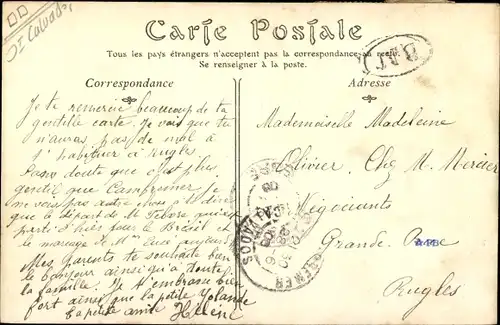 Ir Calvados
Carte Postale
Tous les pays étrangers n'acceptent pas la correspondance au recto.
Se renseigner à la poste.
Correspondance
Je te remercie beaucoup de ta
gentille carte. Je vois que tu
n'auras pas de mal à
t'habituer à Rugles.
Sans doute que c'est plus
gentil que Cambremer. Je
ne vois pas autre chose à te dire
que le départ de M. qui est
parti d'hier pour le Brésil et
le mariage de Mlle
Mes parents te souhaite bien
le bonjour ainsi qu'à toute
la famille. Je t'embrasse bien
fort ainsi que la petite Yolande
La petite amie Hélène
BAT
Adresse
Mademoiselle Madeleine
Olivier, Chez M. Mercier
Négociants
Grande Rue
Rugles
CALVADOS